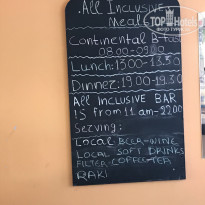 .All Inclusive
Meals
Continental B.fast
08.00-09.00
Lunch:13.00-13.30
Dinner:19.00-19.30
All Inclusive BAR
is from 11am-22.00
Serving:
Local BEER-WINE
LOCAL SOFT DRINKS
FILTER-COFFEE-TEA
RAKI
TOP HOTELS